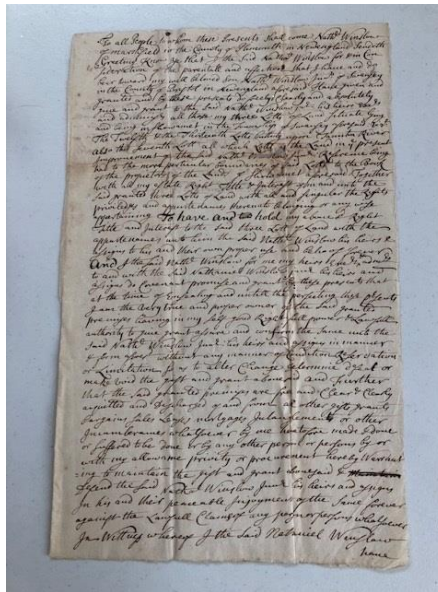 To all People to whom these Presents shall come Nathll Winslow
of Marshfield in the County of Plymouth in New England Sendeth
Greeting Know ye that I the said Nathll Winslow for & in Con
sideration of the parentall Love and affection that I have and do
bear toward my well beloved Son Nathll Winslow Junr of Swansey
in the County of Bristol in New England aforesd Have given and
granted and by these presents do fully clearly and absolutely
give and grant to the said Nathll Winslow Junr his heirs
and assigns all those my three Lotts of Land situate lying
and being in Showamet in the Township of Swansey aforesd
The Twelfth & the Thirteenth Lotts River
also the Seventh Lott all which Lotts of Land is in present
Improvement of the said Nathll Winslow Junr Reference being
had to the more particular boundaries of said Lotts to the Book
of the proprietors of the Lands of Showamet aforesaid Together
with all my Estate Right Title & Interest of in and unto the
said granted three Lotts of Land with all and singular the Rights
priviledges and appurtenances thereunto belonging or any wise
appertaining To have and to hold my above sd Right
Title and Interest to the said three Lotts of Land with the
appurtenances unto him the said Nathll Winslow his heirs &
assigns to his and their own proper use and behoofe forever
And I the said Nathll Winslow for me my heirs
to and with the said Nathaniel Winslow Junr his heirs and
assigns do Covenant promise and grant by these presents that
at the time of Ensealing and untill the presents
I am the very true and proper owner of the said granted
premises having in my self good Right full power & Lawfull
authority to give grant assure and confirm the same unto the
said Nathll Winslow Junr his heirs and assigns in manner
& form aforesd without any manner of Condition Reservation
or Limitation so as to alter Change determine defeat or
make void the gift and grant abovesaid and Further
that the said granted premises are free and Clear & Clearly
acquitted and discharged of and from all other gifts grants
Bargains Sales Leases mortgages Intanglements or other
Incumbrances whatsoever by me heretofore made & done
or suffered to be done or by any other person or persons by or
with my allowance privity or procurement hereby Warrant
ing to maintain the gift and grant abovesaid &
defend the said Nathll Winslow Junr his heirs and assigns
In his and their peaceable Injoyment of the same forever
against the Lawfull Claimes of any person or persons whatsoever
In Wittness whereof I the said Nathaniel Winslow
have